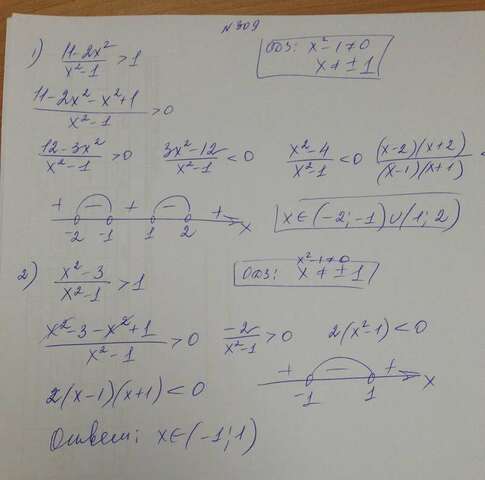 №309
1) (11-2x²)/(x²-1) > 1  ОДЗ: x²-1≠0
x≠±1
(11-2x²-x²+1)/(x²-1) > 0
(12-3x²)/(x²-1) > 0  (3x²-12)/(x²-1) < 0  (x²-4)/(x²-1) < 0  ((x-2)(x+2))/((x-1)(x+1)) <
+ - + - +
-2 -1 1 2 x  x∈(-2;-1)∪(1;2)
2) (x²-3)/(x²-1) > 1  ОДЗ: x²-1≠0
x≠±1
(x²-3-x²+1)/(x²-1) > 0  (-2)/(x²-1) > 0  2(x²-1) < 0
2(x-1)(x+1) < 0  + - +
-1 1 x
Ответ: x∈(-1;1)